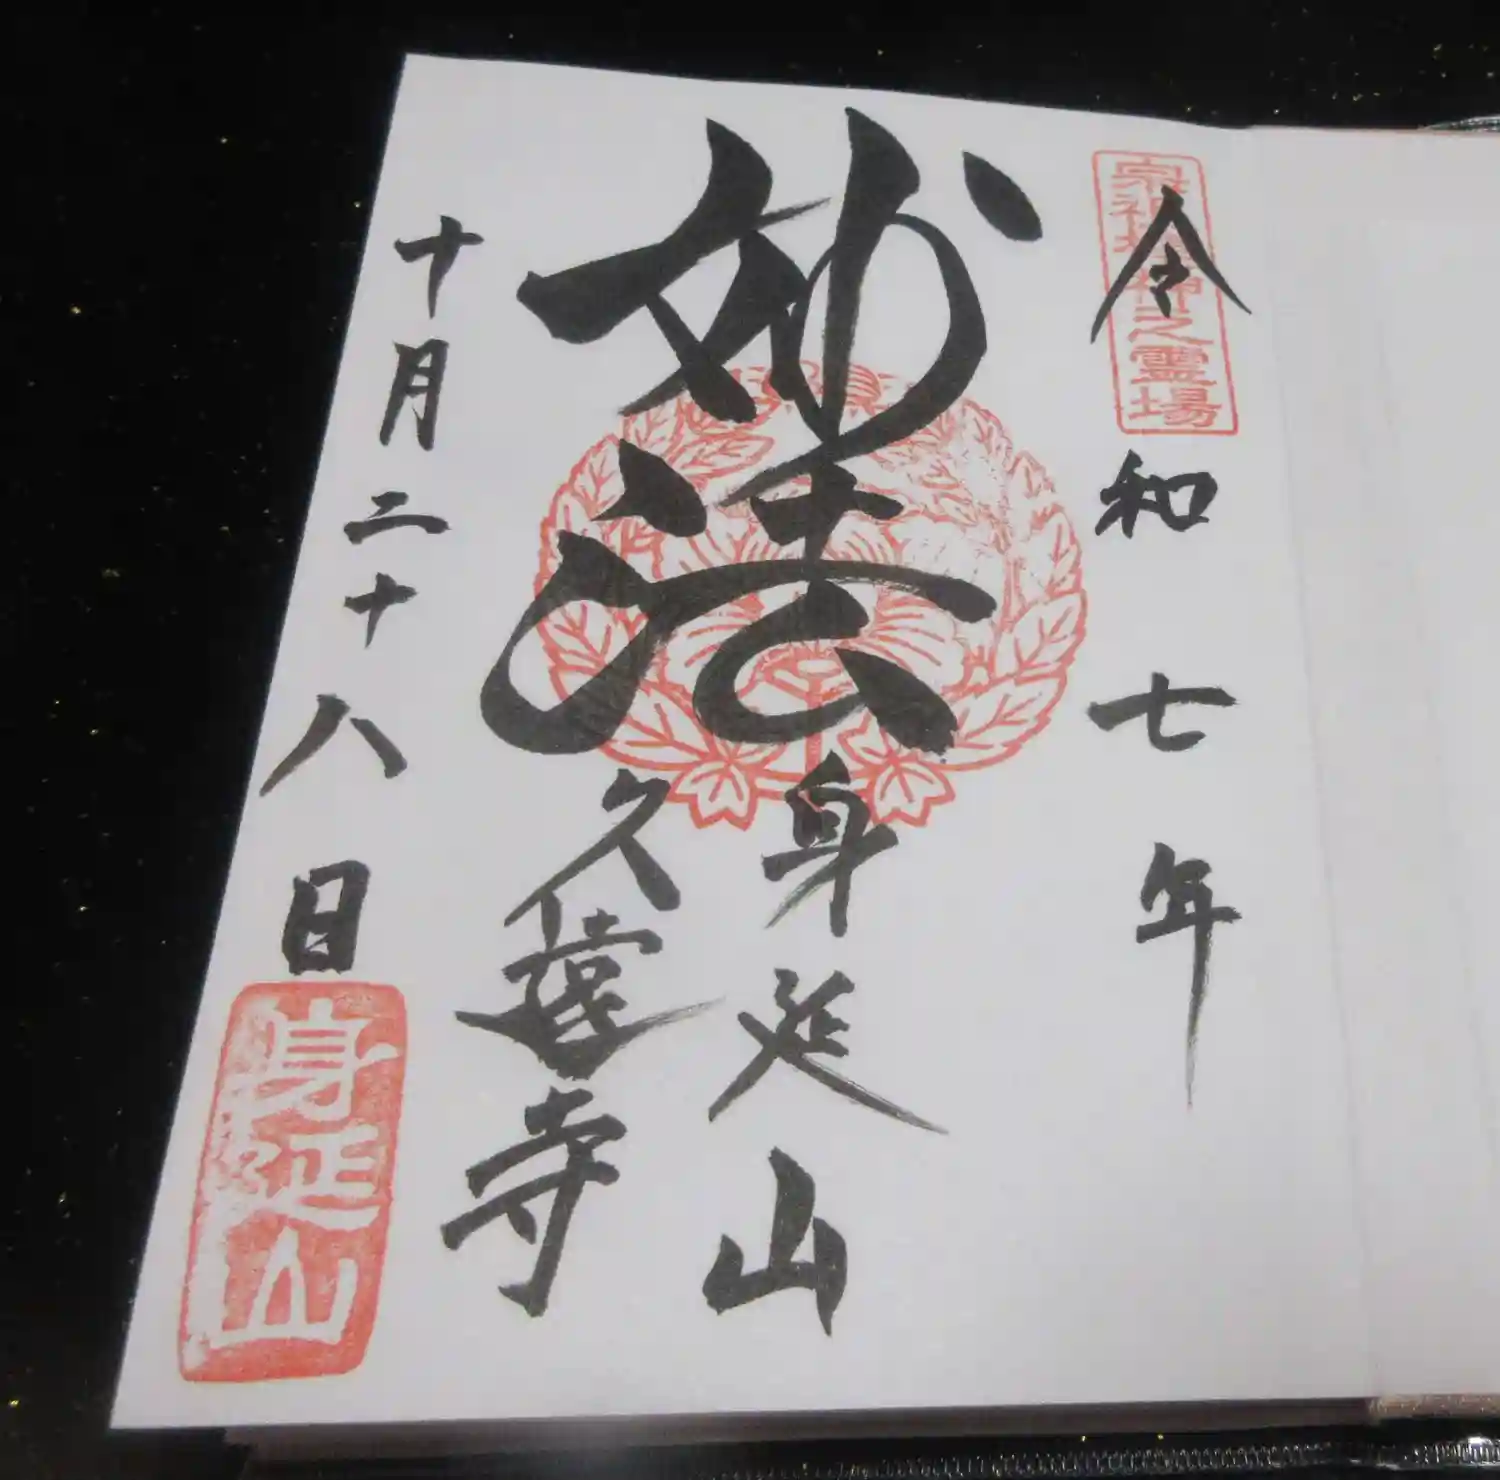 宗祖棲神之霊場
令和七年
妙法
身延山
久遠寺
十月二十八日
身延山